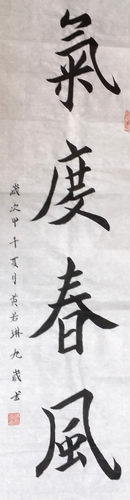 氣度春風
歲次甲午夏月黄若琳九歲書